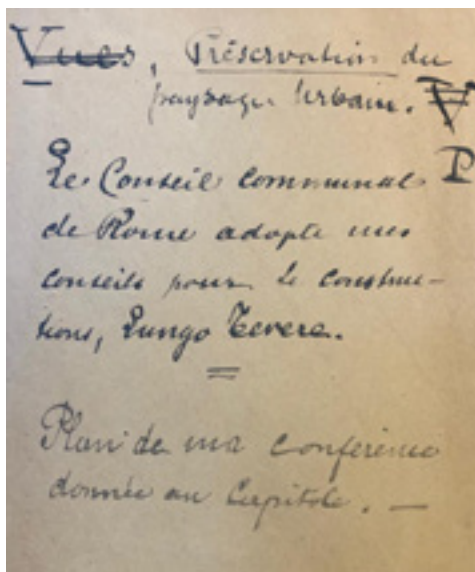 Vues, Préservation du
paysage Urbain. V
P
Le Conseil communal
de Rome adopte mes
conseils pour le construc-
tions, Lungo Tevere.
Plan de ma conférence
donnée au Capitole. —